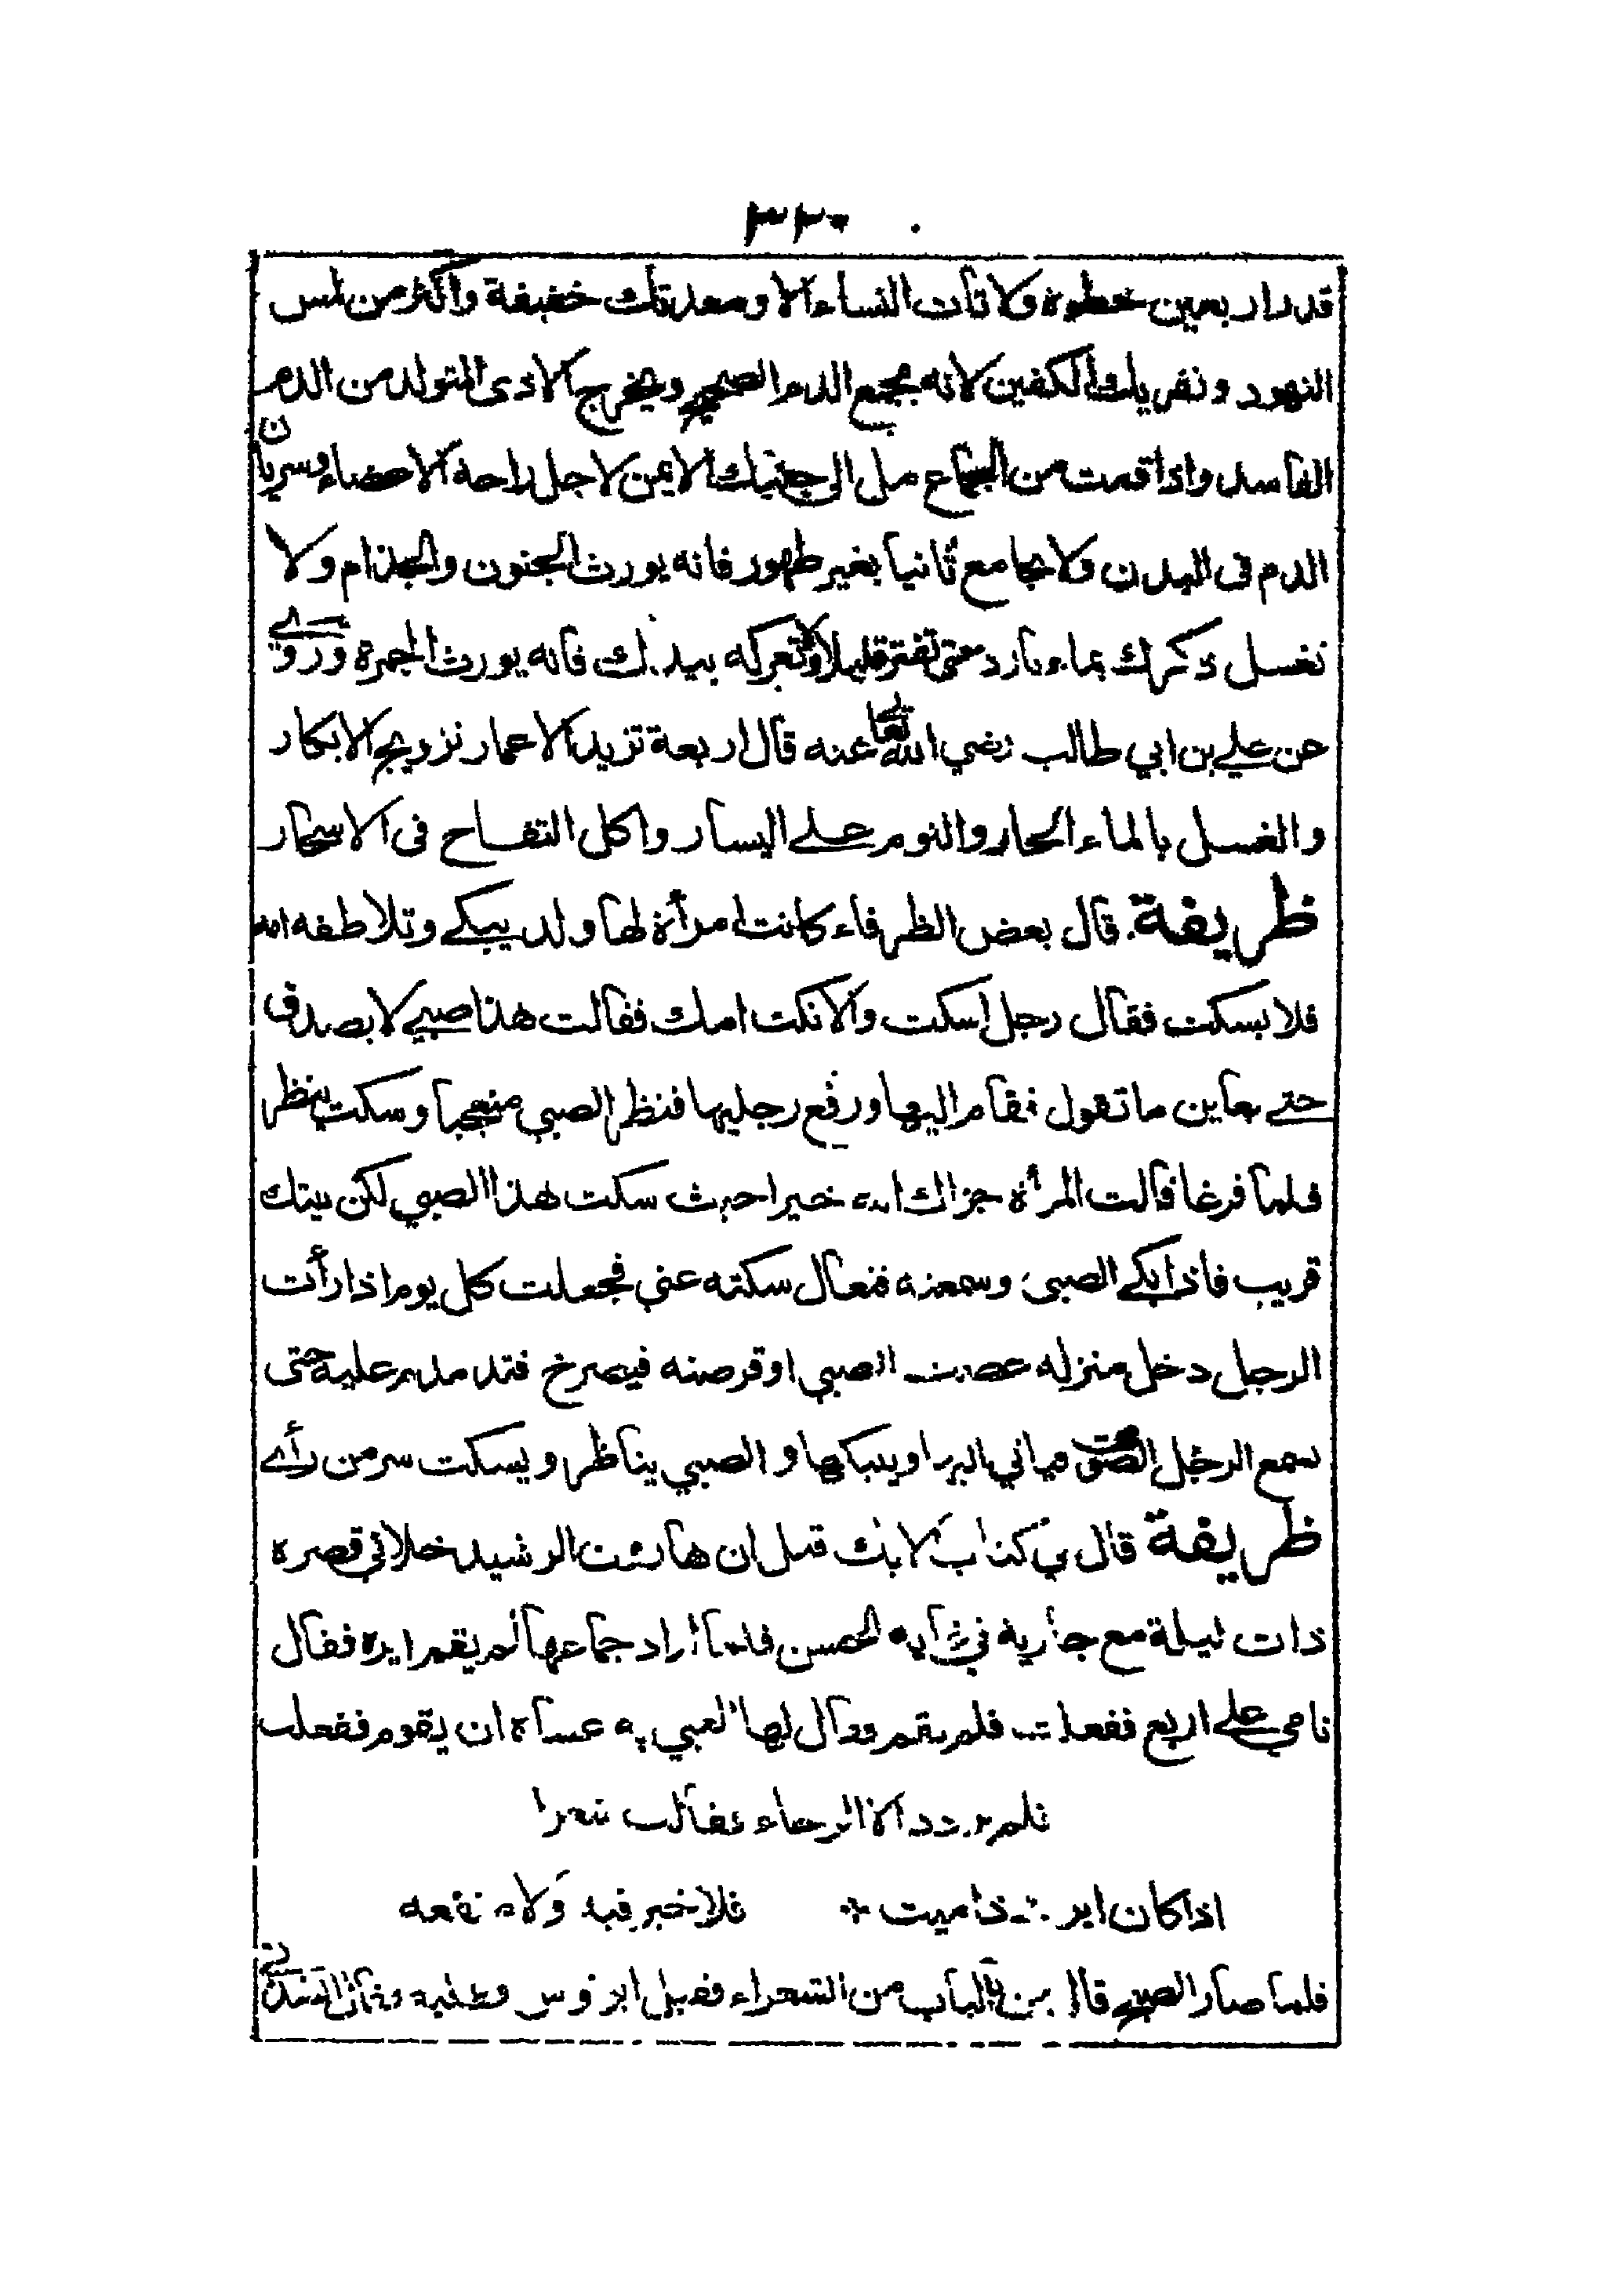 ٣٣٠
قدر اربعين خطوة ولا تأت النساء الا ومعدتك خفيفة واكثر من لمس
النهود وتفريك الكفين لانه مجمع الدم الصحيح ويخرج الاذى المتولد من الدم
الفاسد واذا قمت من الجماع مل الى جنبك الايمن لاجل راحة الاعضاء وسريان
الدم فى البدن ولا تجامع ثانيا بغير طهور فانه يورث الجنون والجذام ولا
تغسل ذكرك بماء بارد حتى تفتر قليلا ولا تعركه بيدك فانه يورث الجمرة وروي
عن علي بن ابي طالب رضي الله تعالى عنه قال اربعة تزيد الاعمار تزويج الابكار
والغسل بالماء الحار والنوم على اليسار واكل التفاح فى الاسحار
ظريفة قال بعض الظرفاء كانت امرأة لها ولد يبكي وتلاطفه امه
فلا يسكت فقال رجل اسكت والا نكت امك فقالت هذا صبي لا يصدق
حتى يعاين ما تقول فقام اليها ورفع رجليها فنظر الصبي متعجبا وسكت ينظر
فلما فرغا قالت المرأة جزاك الله خيرا حيث سكت هذا الصبي لكن بيتك
قريب فاذا بكى الصبى وسمعته فتعال سكته عني فجعلت كل يوم اذا رأت
الرجل دخل منزله الصبي او قرصته فيصرخ عليه حتى
سمع الرجل الصوت والصبي يناظر ويسكت سر من رأى
ظريفة قال في كتاب قيل ان هارون الرشيد خلا في قصره
ذات ليلة مع جارية في غاية الحسن فلما اراد جماعها لم يقم ايره فقال
نامي على اربع ففعلت فلم يقم فقال لها العبي به عساه ان يقوم ففعلت
فلم يزدد الا ارخاء فقالت شعرا
اذا كان اير ذا ميت * فلا خير فيه ولا منفعه
فلما صار الصبح قال من بالباب من الشعراء فقيل ابو نواس